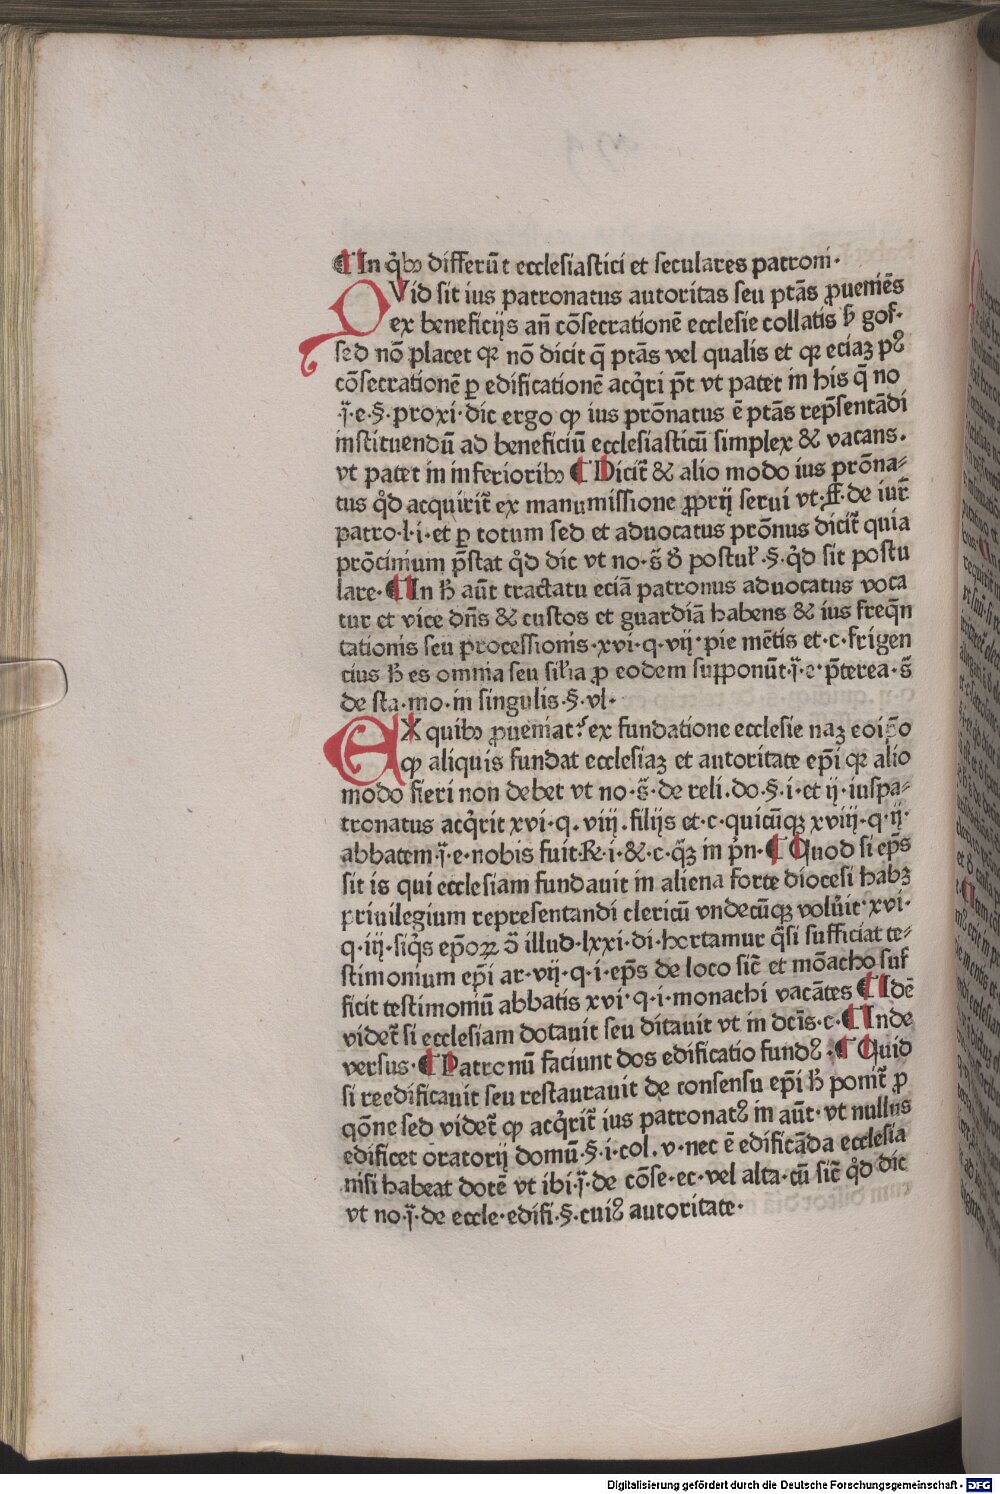 ¶In q̇bꝫ differūt ecclesiastici et seculares patroni·
QVid sit ius patronatus autoritas seu ptās ꝓueniēs
ex beneficijs an̄ cōsecrationē ecclesie collatis h̄ gof·
sed nō placet qꝛ nō dicit q̄ ptās vel qualis et qꝛ eciaꝫ pꝰ
cōsecrationē ꝑ edificationē acq̇ri pt̄ vt patet in his q̄ no
·j̄·e·§·proxi·dic ergo ꝙ ius prōnatus ē ptās rep̄sentādi
instituendū ad beneficiū ecclesiasticū simplex & vacans.
vt patet in inferioribꝫ ¶Dicit̄ & alio modo ius prōna-
tus q̇d acquirit̄ ex manumissione ꝓprij serui vt·ff·de iur̄
patro·l·i·et ꝑ totum sed et aduocatus prōnus dicit̄ quia
prōcinium p̄stat q̇d dic vt no·s̄ đ postul̓·§·q̇d sit postu
lare·¶In h̄ aūt tractatu eciā patronus aduocatus voca
tur et vice dn̄s & custos et guardiā habens & ius freq̄n
tationis seu processionis·xvi·q·vij·pie mētis et·c·frigen
cius h̄ es omnia seu sil̓ia ꝓ eodem supponūt·j̄·e·p̄terea·s̄
de sta·mo·in singulis·§·vl·
EX quibꝫ ꝓueniat? ex fundatione ecclesie naꝫ eoip̄o
ꝙ aliquis fundat ecclesiaꝫ et autoritate ep̄i qꝛ alio
modo fieri non debet vt no·s̄·de reli.do·§·i·et ij·iuspa-
tronatus acq̇rit xvi·q.viij.filijs et·c·quicūqꝫ xviij·q·ij·
abbatem·j̄·e·nobis fuit·R·i·&·c·q̄ꝫ in pn̄·¶Quod si ep̄s
sit is qui ecclesiam fundauit in aliena forte diocesi habꝫ
priuilegium representandi clericū vndecūqꝫ voluit·xvi·
q·iij·siq̇s ep̄oꝝ ō illud·lxxi·di·hortamur q̄si sufficiat te-
stimonium ep̄i ar·vij·q·i·ep̄s de loco sic̄ et mōacho suf
ficit testimoniū abbatis xvi·q·i·monachi vacātes ¶Idē
videt̄ si ecclesiam dotauit seu ditauit vt in dc̄is·c·¶Inde
versus·¶Patronū faciunt dos edificatio fundꝰ·¶Quid
si reedificauit seu restaurauit de consensu ep̄i h̄ ponit̄ ꝓ
qōne sed videt̄ ꝙ acq̇rit̄ ius patronatꝰ in aūt·vt nullus
edificet oratorij domū·§·i·col.v·nec ē edificāda ecclesia
nisi habeat dotē vt ibi·j̄·de cōse·ec·vel alta·cū sic̄ q̇d dic
vt no·j̄·de eccle·edifi·§·cuiꝰ autoritate·
Digitalisierung gefördert durch die Deutsche Forschungsgemeinschaft - DFG